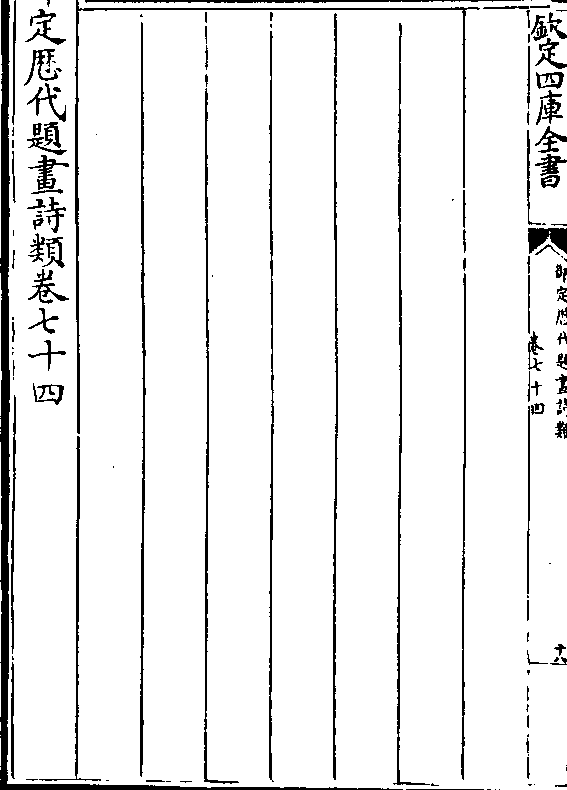 欽定四庫全書
御定歴代題畫詩類
卷七十四
十八
定歴代題畫詩類卷七十四